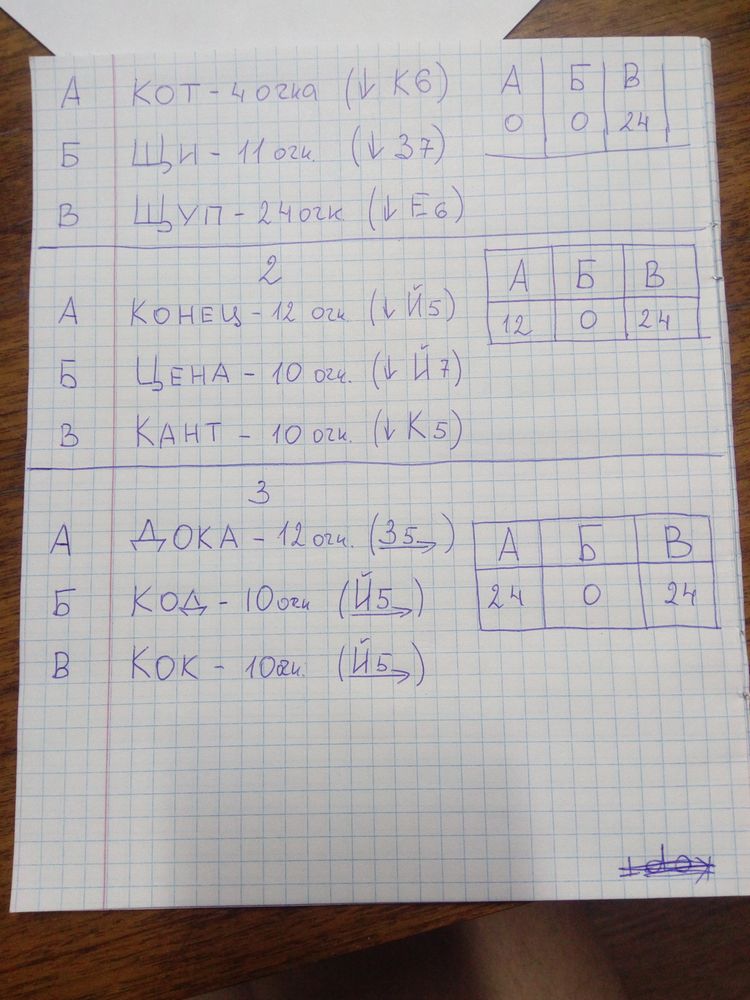 А КОТ - 4 очка (↓ К6)
А Б В
0 0 24
Б ЩИ - 11 очк. (↓ З7)
В ЩУП - 24 очк (↓ Е6)
2
А КОНЕЦ - 12 очк. (↓ Й5)
А Б В
12 0 24
Б ЦЕНА - 10 очк. (↓ Й7)
В КАНТ - 10 очк. (↓ К5)
3
А ДОКА - 12 очк. (З5→)
А Б В
24 0 24
Б КОД - 10 очк (Й5→)
В КОК - 10 очк. (Й5→)